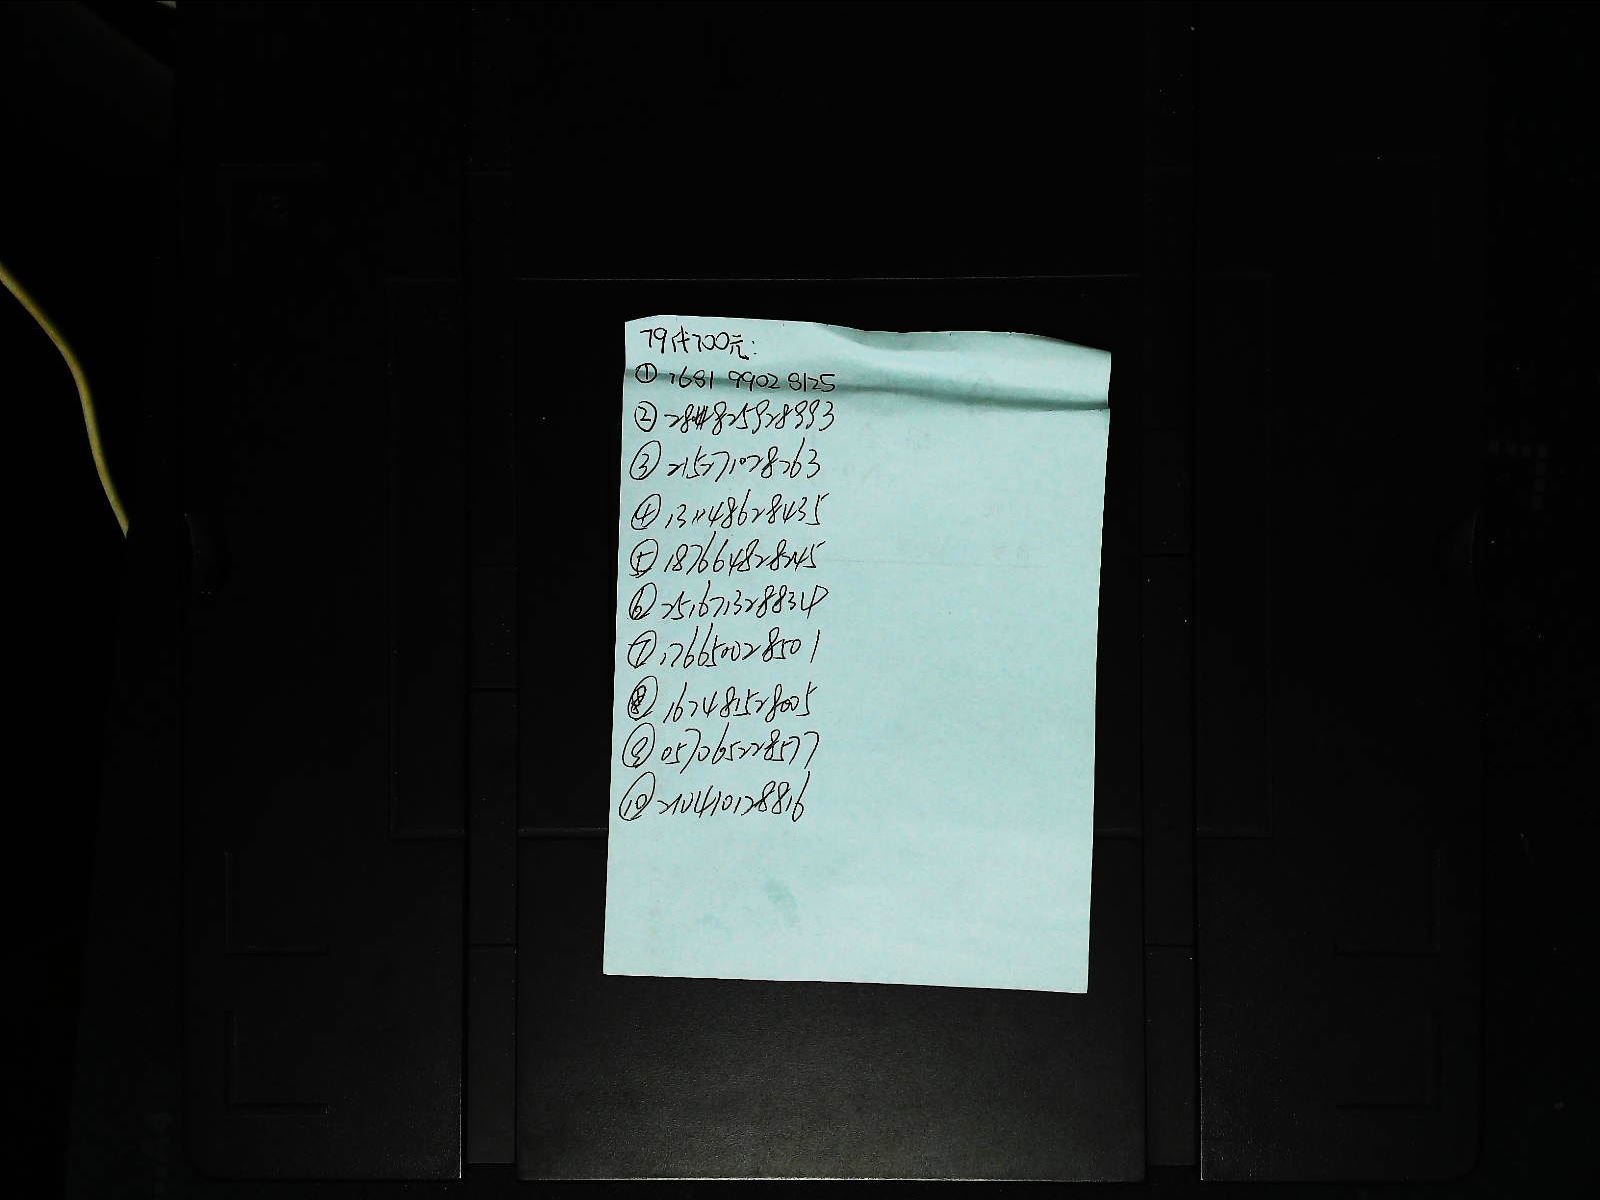 79代700元:
① 1681 9902 8125
② 284825928993
③ 215271028263
④ 131148628435
⑤ 187664828245
⑥ 251671328834
⑦ 176650028501
⑧ 162481528005
⑨ 057065228577
⑩ 210410128816